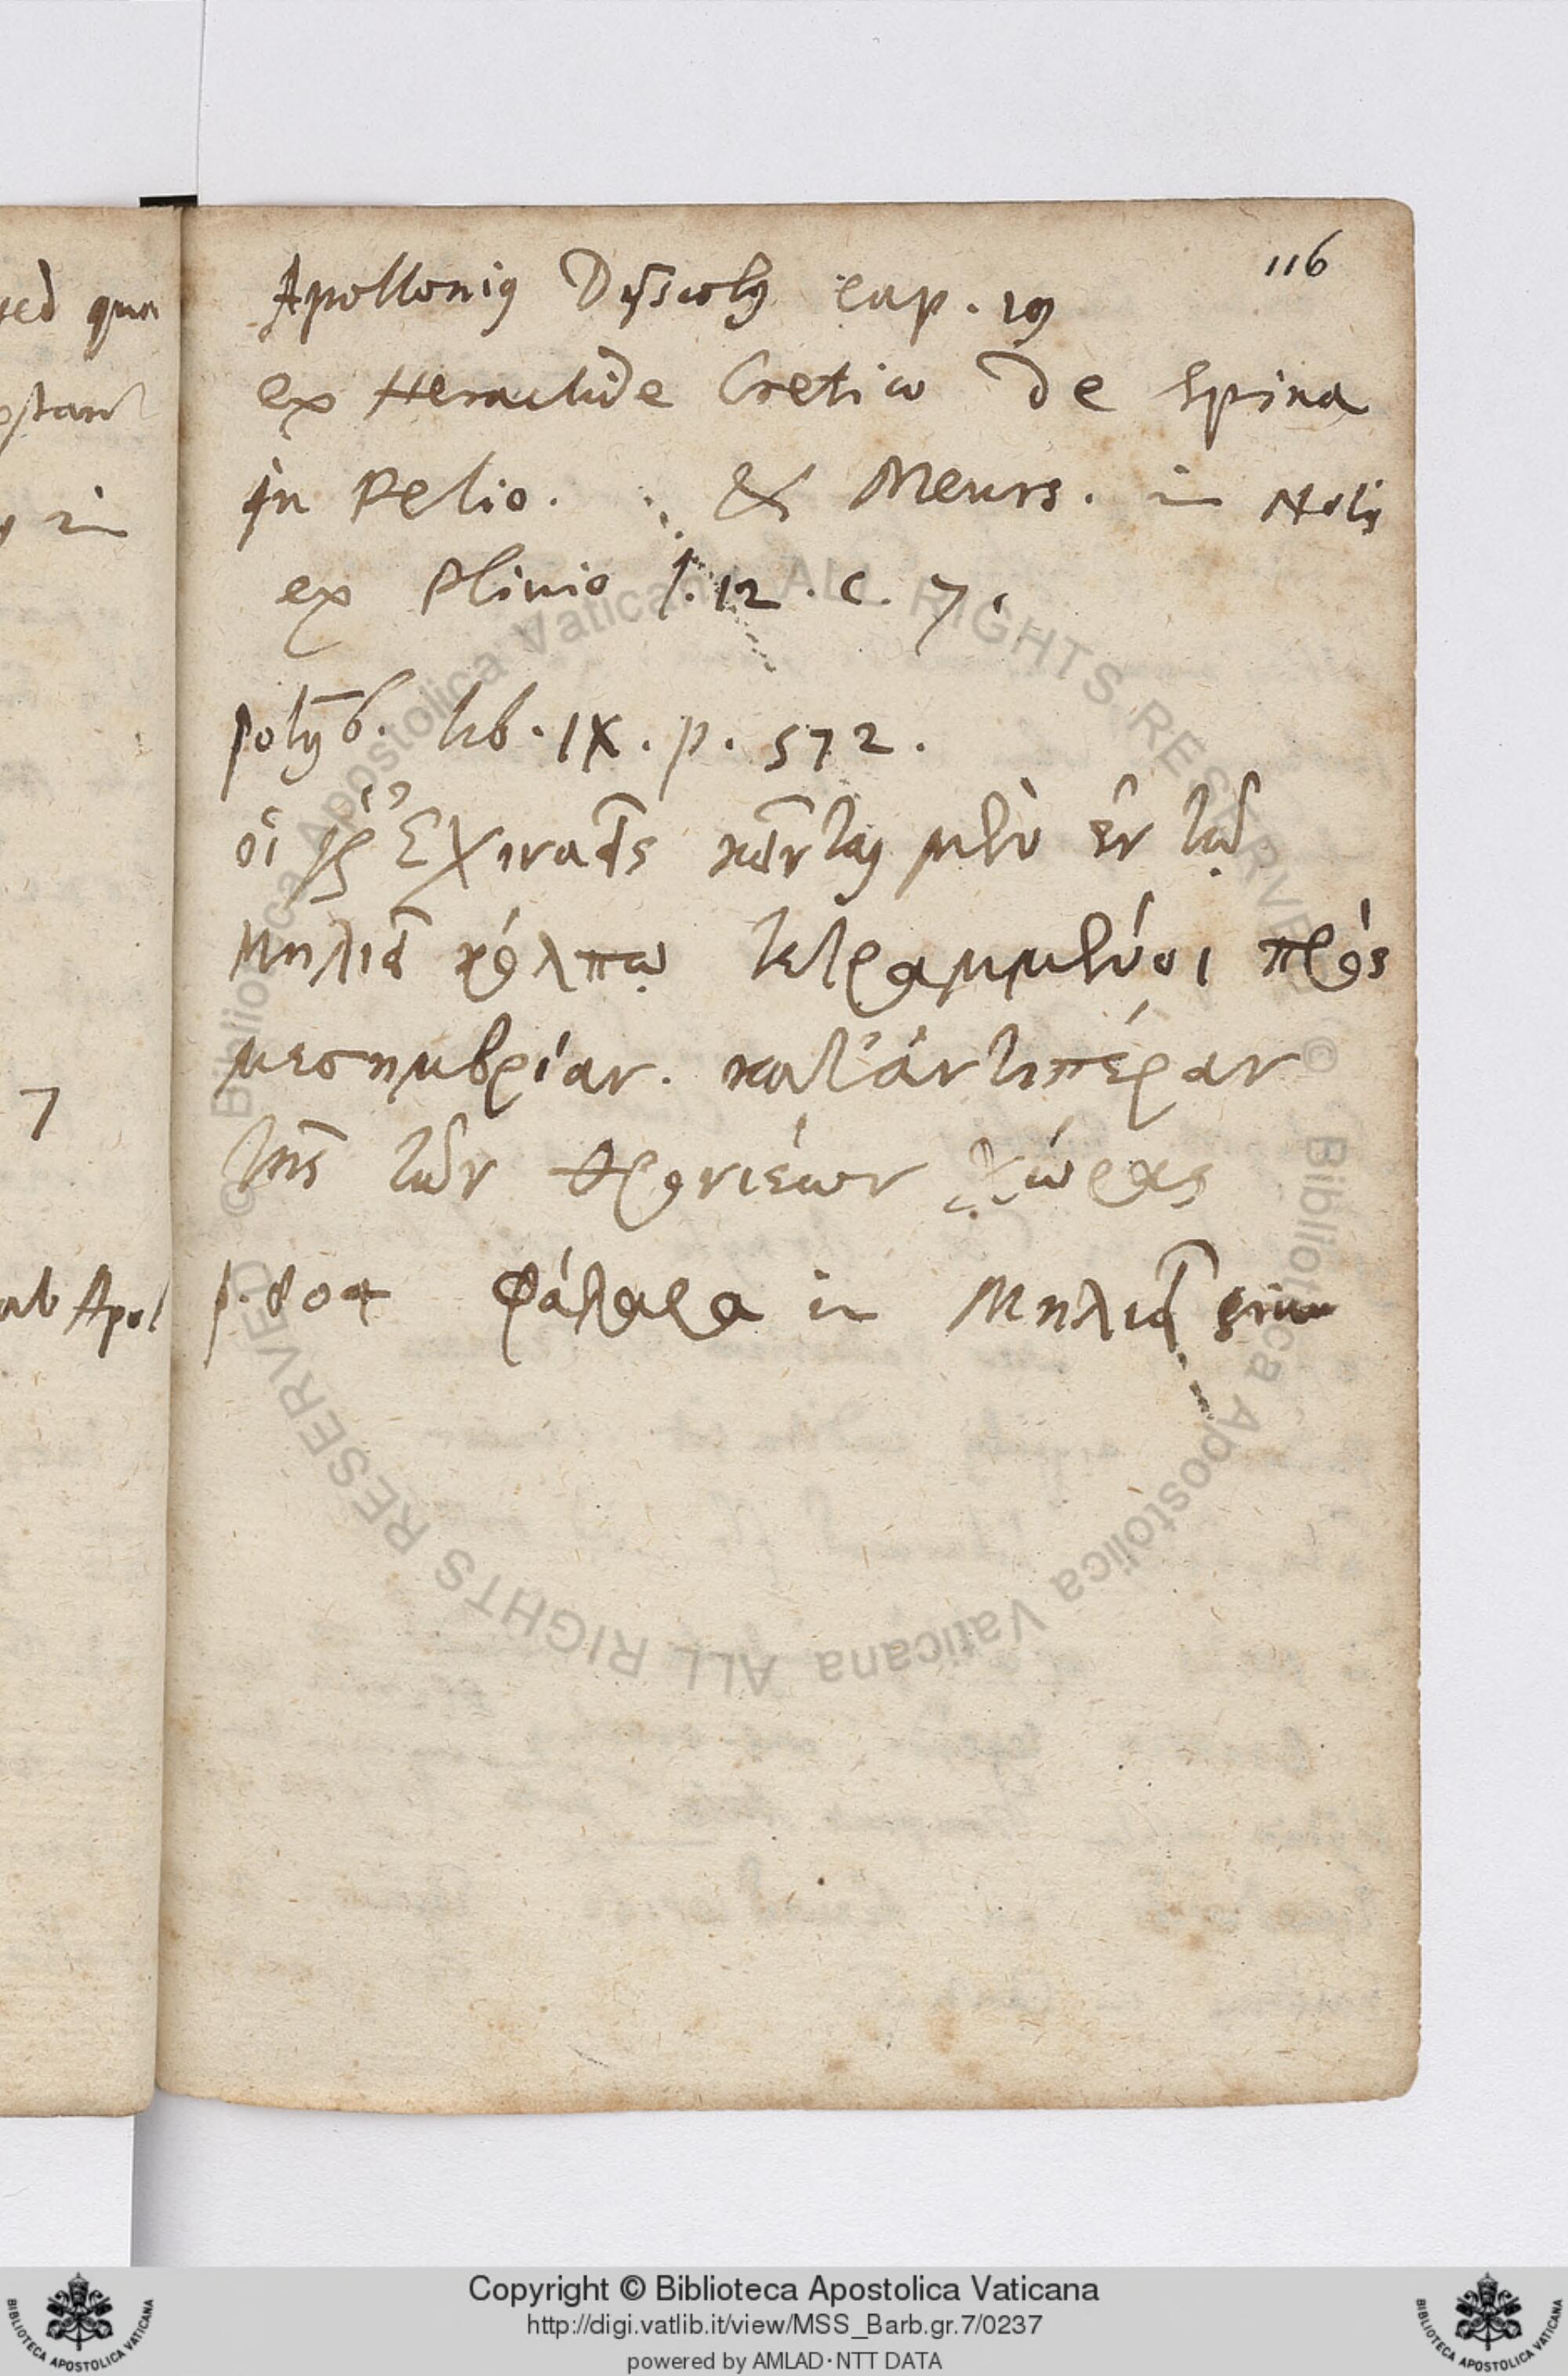 116
Apollonius Dyscolus cap. 19
ex Heraclide Cretico de spina
in Pelio. & Meurs. in Notis
ex Plinio l. 12. c. 7.
polyb. lib. IX. p. 572.
οἱ γὰρ Ἐχιναιεῖς κεῖνται μὲν ἐν τῷ
Μηλιεῖ κόλπῳ τετραμμένοι πρὸς
μεσημβρίαν. κατ' ἀντιπέραν
τῆς τῶν Θρονιέων χώρας
p. 804 Φάλαρα in Μηλιεῖ sinu
sed qua
in
7
ab Apol
Copyright © Biblioteca Apostolica Vaticana
http://digi.vatlib.it/view/MSS_Barb.gr.7/0237
powered by AMLAD · NTT DATA
BIBLIOTECA APOSTOLICA VATICANA
BIBLIOTECA APOSTOLICA VATICANA
© Biblioteca Apostolica Vaticana ALL RIGHTS RESERVED
© Biblioteca Apostolica Vaticana ALL RIGHTS RESERVED